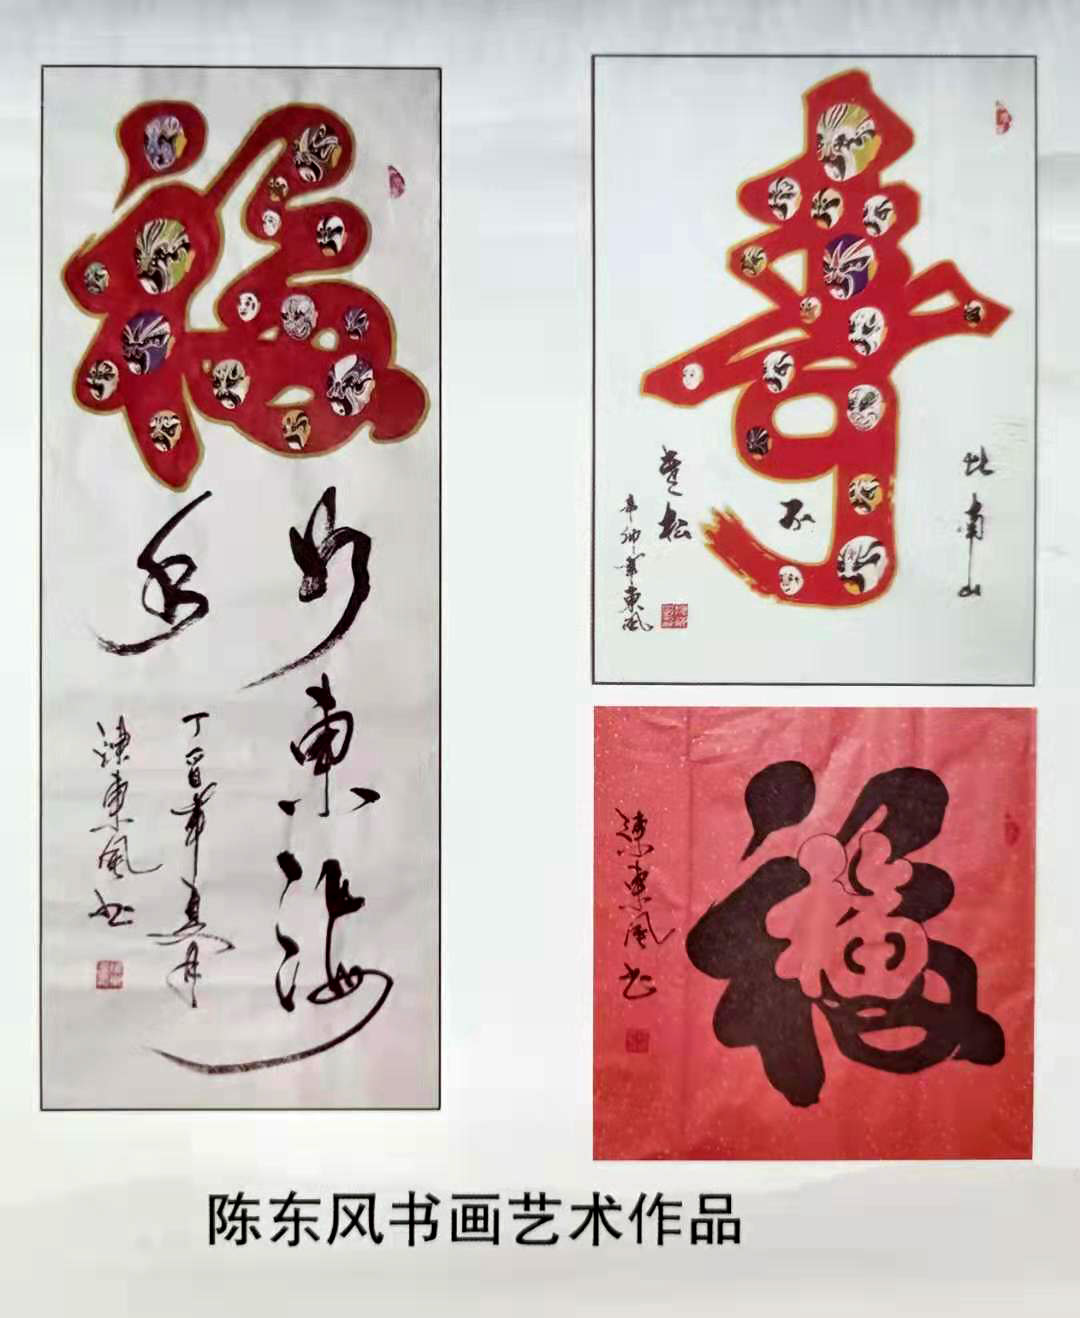 福
如東海
水
丁酉年夏月
陳東風书
壽
比南山
不
老松
辛卯年東風
福
陳東風书
陈东风书画艺术作品